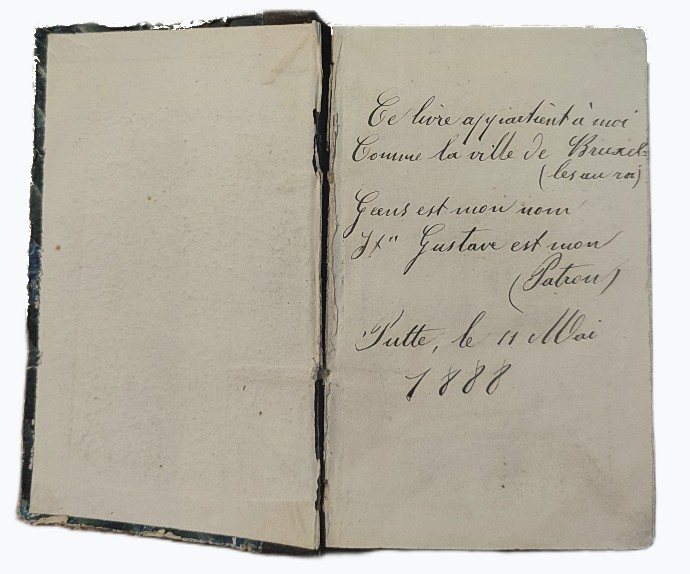 Ce livre appartient à moi
Comme la ville de Bruxel-
(les au roi)
Goens est mon nom
St" Gustave est mon
(Patron)
Putte, le 11 Mai
1888